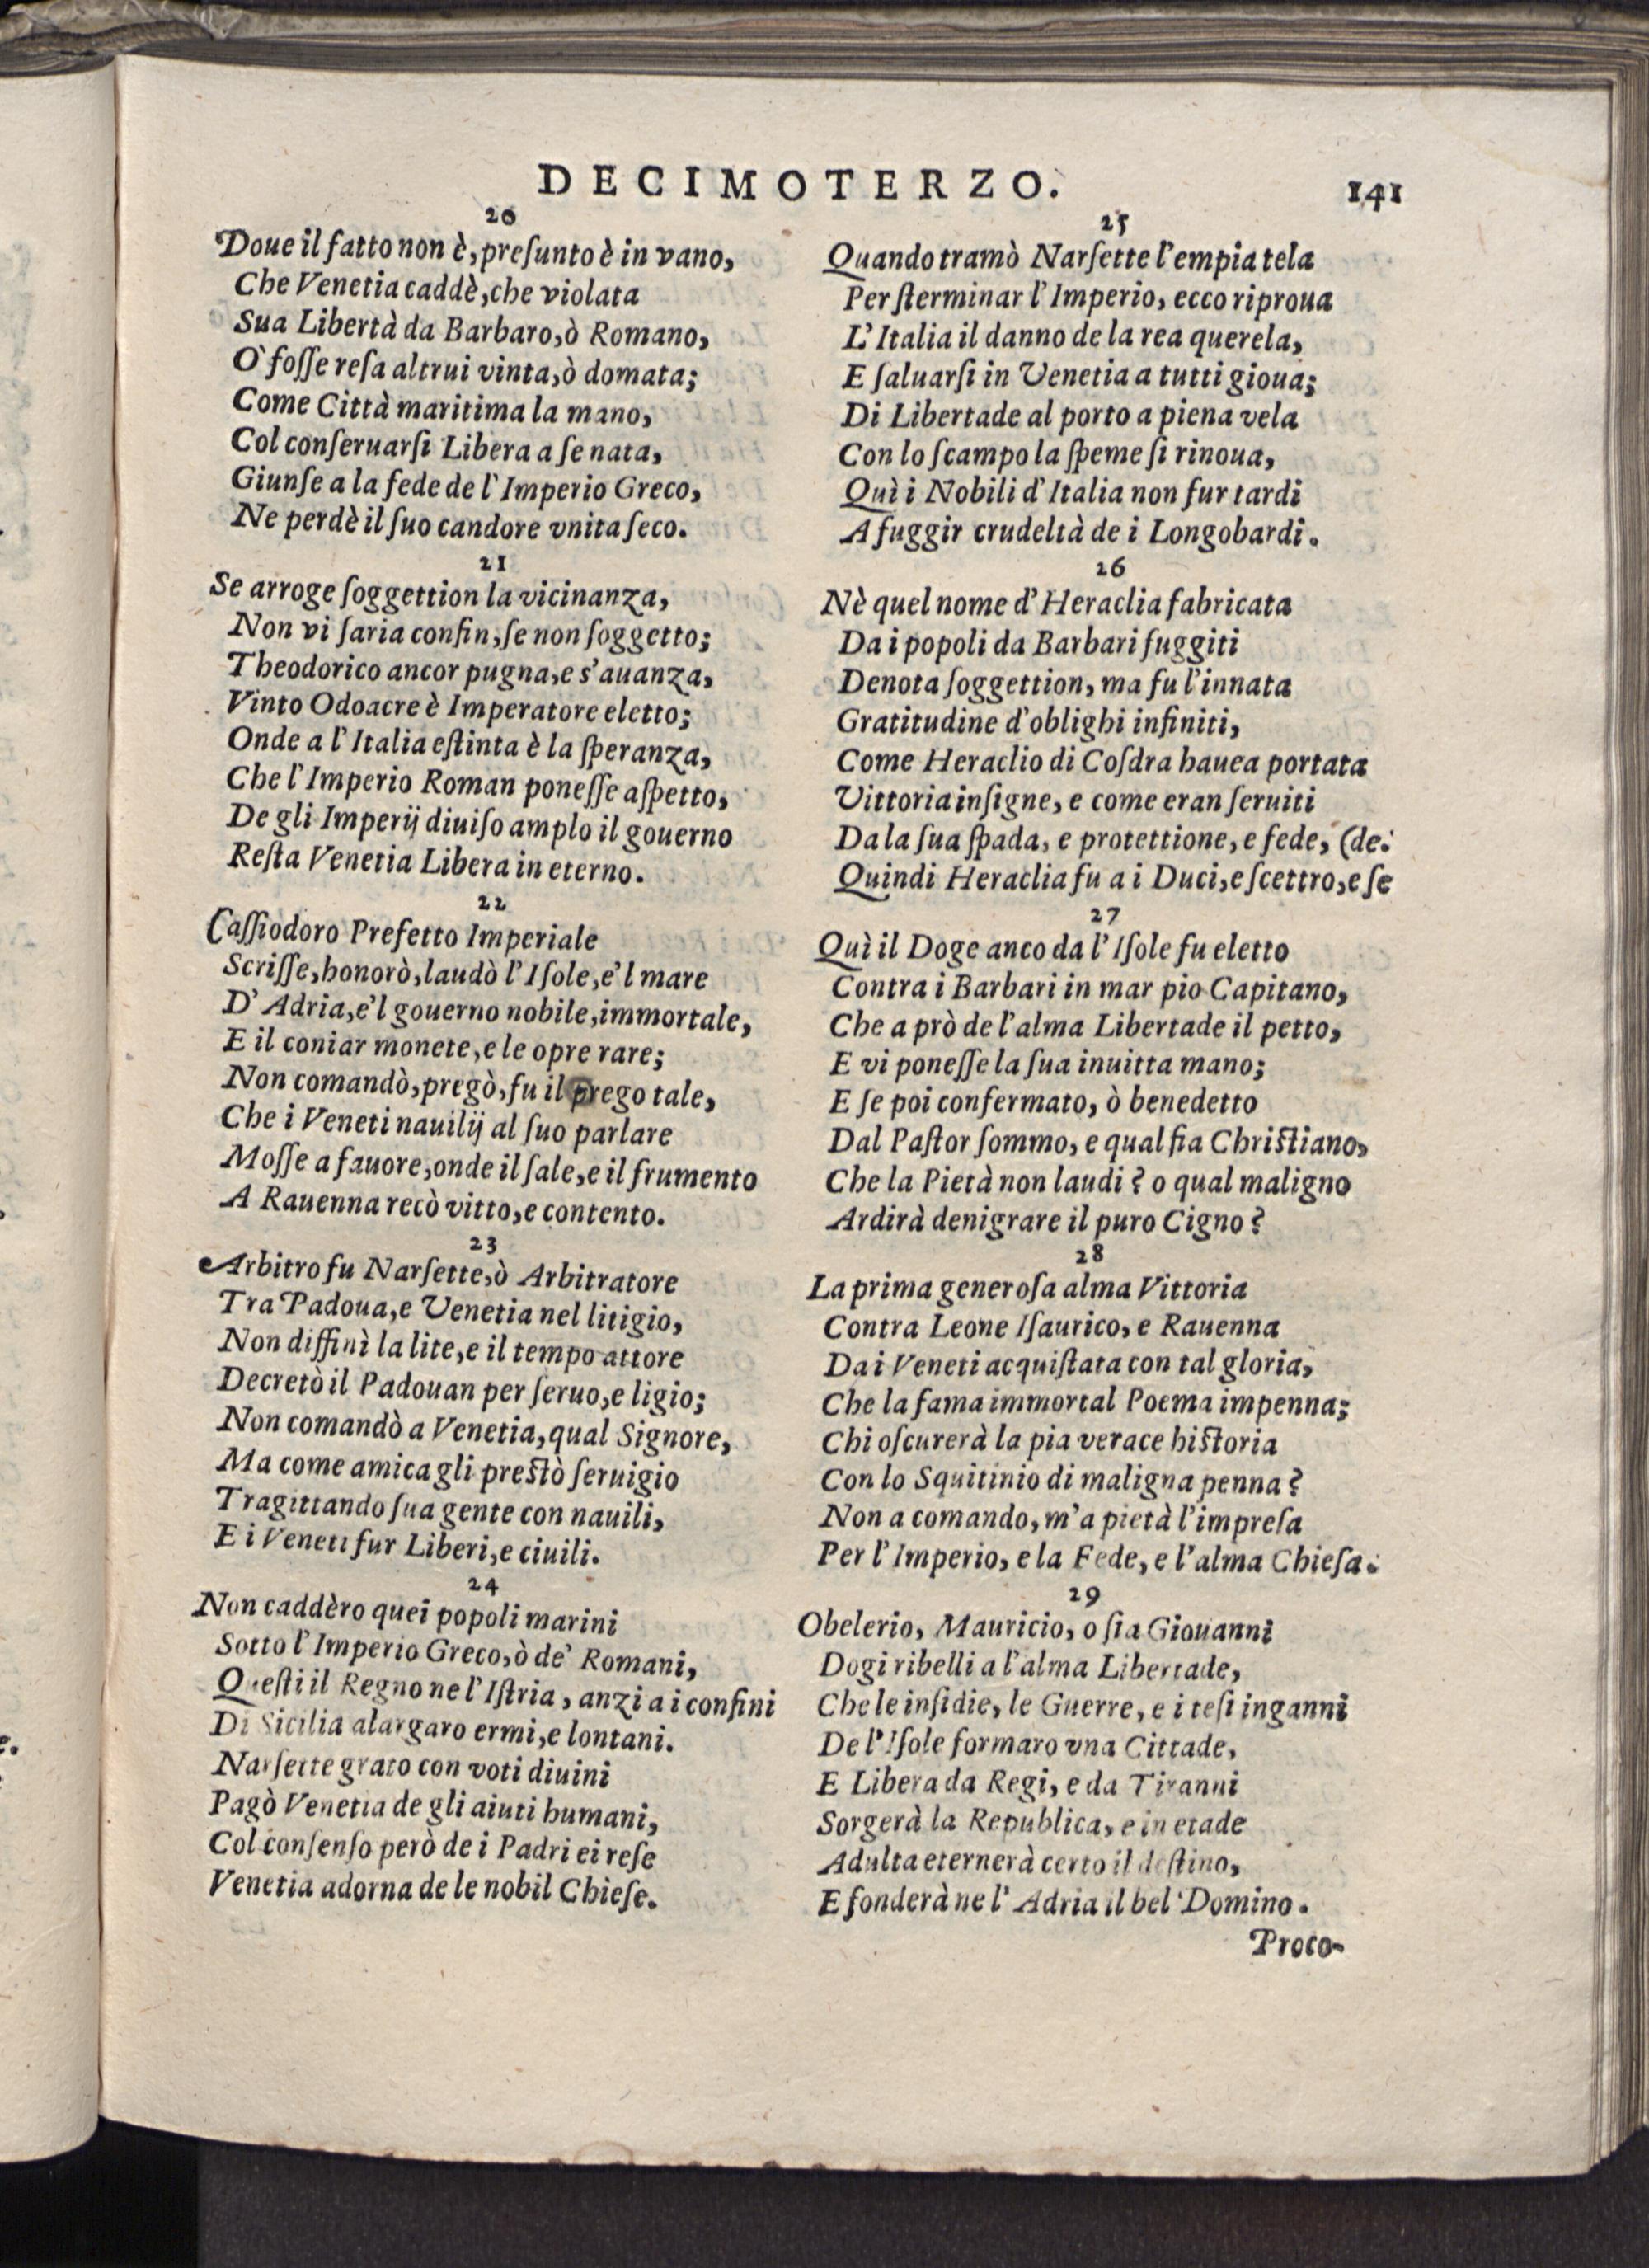 DECIMOTERZO. 141
20
Doue il fatto non è, preſunto è in vano,
Che Venetia caddè, che violata
Sua Libertà da Barbaro, ò Romano,
O' foſſe reſa altrui vinta, ò domata;
Come Città maritima la mano,
Col conſeruarſi Libera a ſe nata,
Giunſe a la fede de l'Imperio Greco,
Ne perdè il ſuo candore vnita ſeco.
21
Se arroge ſoggettion la vicinanza,
Non vi ſaria confin, ſe non ſoggetto;
Theodorico ancor pugna, e s'auanza,
Vinto Odoacre è Imperatore eletto;
Onde a l'Italia eſtinta è la ſperanza,
Che l'Imperio Roman poneſſe aſpetto,
De gli Imperij diuiſo amplo il gouerno
Reſta Venetia Libera in eterno.
22
Caſſiodoro Prefetto Imperiale
Scriſſe, honorò, laudò l'Iſole, e'l mare
D'Adria, e'l gouerno nobile, immortale,
E il coniar monete, e le opre rare;
Non comandò, pregò, fu il prego tale,
Che i Veneti nauilij al ſuo parlare
Moſſe a fauore, onde il ſale, e il frumento
A Rauenna recò vitto, e contento.
23
Arbitro fu Narſette, ò Arbitratore
Tra Padoua, e Venetia nel litigio,
Non diffinì la lite, e il tempo attore
Decretò il Padouan per ſeruo, e ligio;
Non comandò a Venetia, qual Signore,
Ma come amica gli preſtò ſeruigio
Tragittando ſua gente con nauili,
E i Veneti fur Liberi, e ciuili.
24
Non caddèro quei popoli marini
Sotto l'Imperio Greco, ò de' Romani,
Queſti il Regno ne l'Iſtria, anzi a i confini
Di Sicilia alargaro ermi, e lontani.
Narſette grato con voti diuini
Pagò Venetia de gli aiuti humani,
Col conſenſo però de i Padri ei reſe
Venetia adorna de le nobil Chieſe.
25
Quando tramò Narſette l'empia tela
Per ſterminar l'Imperio, ecco riproua
L'Italia il danno de la rea querela,
E ſaluarſi in Venetia a tutti gioua;
Di Libertade al porto a piena vela
Con lo ſcampo la ſpeme ſi rinoua,
Quì i Nobili d'Italia non fur tardi
A fuggir crudeltà de i Longobardi.
26
Nè quel nome d'Heraclia fabricata
Da i popoli da Barbari fuggiti
Denota ſoggettion, ma fu l'innata
Gratitudine d'oblighi infiniti,
Come Heraclio di Coſdra hauea portata
Vittoria inſigne, e come eran ſeruiti
Da la ſua ſpada, e protettione, e fede, (de:
Quindi Heraclia fu a i Duci, e ſcettro, e ſe
27
Quì il Doge anco da l'Iſole fu eletto
Contra i Barbari in mar pio Capitano,
Che a prò de l'alma Libertade il petto,
E vi poneſſe la ſua inuitta mano;
E ſe poi confermato, ò benedetto
Dal Paſtor ſommo, e qual fia Chriſtiano,
Che la Pietà non laudi? o qual maligno
Ardirà denigrare il puro Cigno?
28
La prima generoſa alma Vittoria
Contra Leone Iſaurico, e Rauenna
Da i Veneti acquiſtata con tal gloria,
Che la fama immortal Poema impenna;
Chi oſcurerà la pia verace hiſtoria
Con lo Squitinio di maligna penna?
Non a comando, m'a pietà l'impreſa
Per l'Imperio, e la Fede, e l'alma Chieſa.
29
Obelerio, Mauricio, o ſia Giouanni
Dogi ribelli a l'alma Libertade,
Che le inſidie, le Guerre, e i teſi inganni
De l'Iſole formaro vna Cittade,
E Libera da Regi, e da Tiranni
Sorgerà la Republica, e in etade
Adulta eternerà certo il deſtino,
E fonderà ne l'Adria il bel Domino.
Proco-